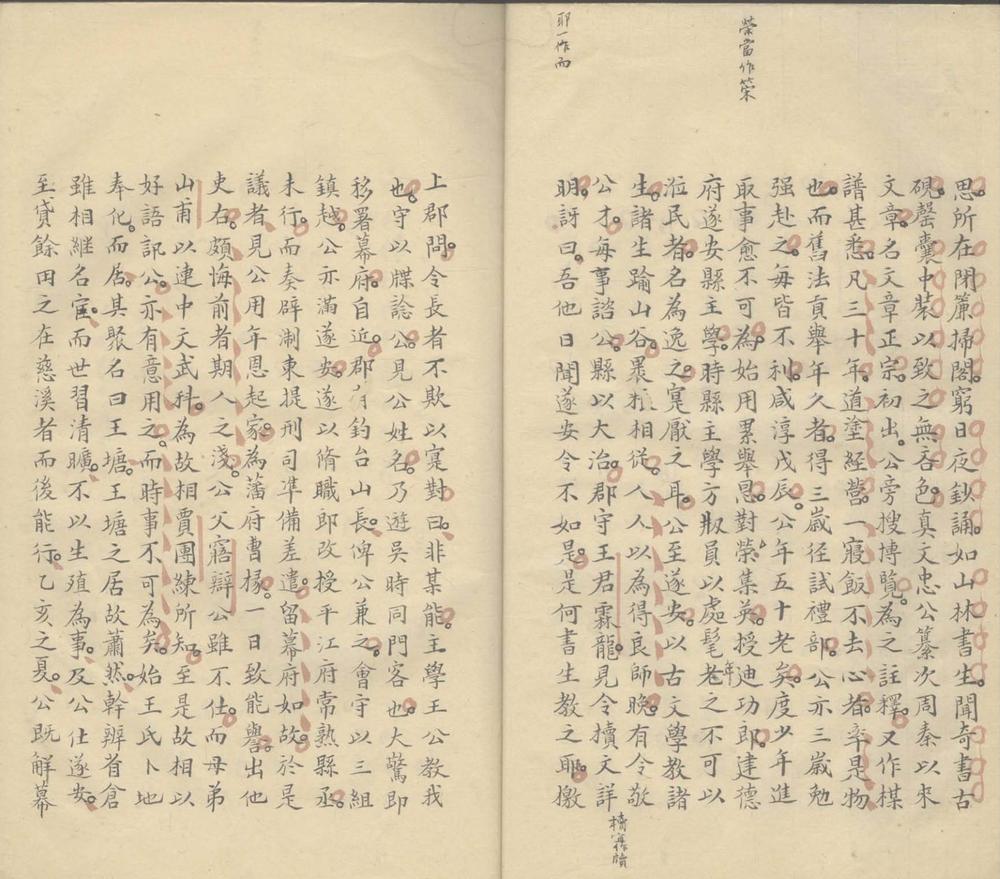 榮當作策
耶一作而
思所在閉簾掃閣窮日夜鈔誦如山林書生聞奇書古
硯罄囊中裝以致之無吝色真文忠公纂次周秦以來
文章名文章正宗初出公旁搜博覽為之註釋又作楳
譜甚悉凡三十年道塗經營一寢飯不去心者率是物
也而舊法貢舉年久者得三歲徑試禮部公亦三歲勉
强赴之每皆不利咸淳戊辰公年五十老矣度少年進
取事愈不可為始用累舉恩對榮集英授迪功郎建德
府遂安縣主學時縣主學方剏員以處髦老年之不可以
涖民者名為逸之寔厭之耳公至遂安以古文學教諸
生諸生踰山谷裹粮相從人人以為得良師晚有令敬
公才每事諮公縣以大治郡守王君霖龍見令牘文詳
明訝曰吾他日聞遂安令不如是是何書生教之耶檄
牘
上郡問令長者不欺以寔對曰非某能主學王公教我
也守以牒諗公見公姓名乃遊吳時同門客也大驚即
移署幕府自近郡有釣台山長俾公兼之會守以三組
鎮越公亦滿遂安遂以脩職郎改授平江府常熟縣丞
未行而奏辟淛東提刑司準備差遣留幕府如故於是
議者見公用年恩起家為藩府曹掾一日致能譽出他
吏右頗悔前者期人之淺公父寤辯公雖不仕而母弟
山甫以連中文武科為故相賈團練所知至是故相以
好語訊公亦有意用之而時事不可為矣始王氏卜地
奉化而居其聚名曰王塘王塘之居故蕭然幹辨首倉
雖相繼名宦而世習清曠不以生殖為事及公仕遂安
至貸餘田之在慈溪者而後能行乙亥之夏公既解幕